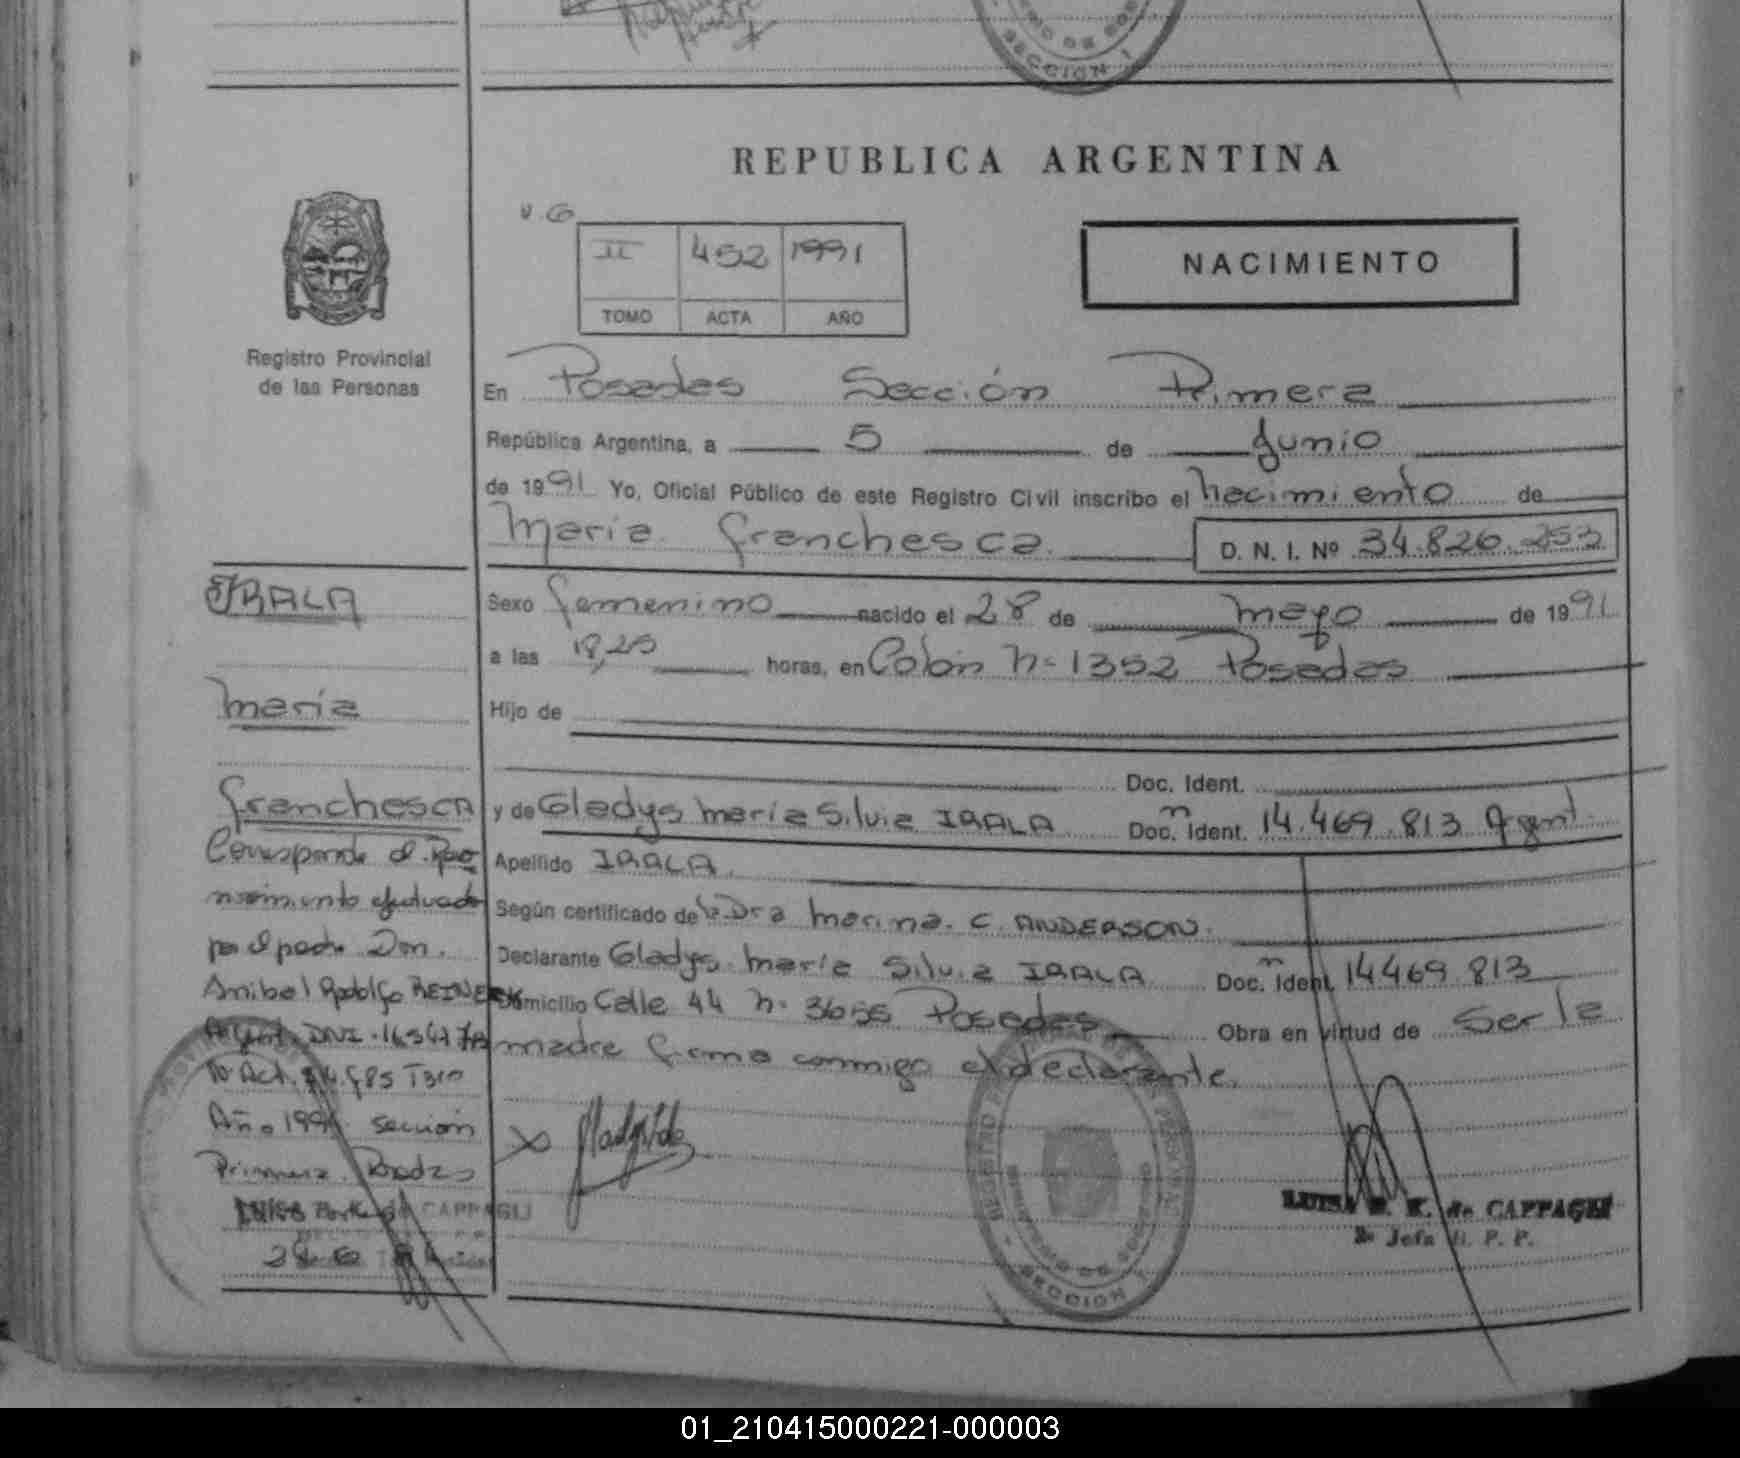 SECCION 1
REPUBLICA ARGENTINA
V.G
II 452 1991
TOMO ACTA AÑO
NACIMIENTO
Registro Provincial
de las Personas
En Posadas Sección Primera
República Argentina, a 5 de Junio
de 1991 Yo, Oficial Público de este Registro Civil inscribo el nacimiento de
María Franchesca D. N. I. Nº 34.826.253
Sexo femenino nacido el 28 de mayo de 1991
a las 18,25 horas, en Colón N- 1352 Posadas
Hijo de
Doc. Ident.
y de Gladys María Silvia IRALA Doc. Ident. 14.469.813 Argent.
Apellido IRALA.
Según certificado de la Dra Marina. C. ANDERSON.
Declarante Gladys María Silvia IRALA Doc. Ident. 14469.813
Domicilio Calle 44 N- 3655 Posadas Obra en virtud de Ser la
madre firma conmigo el declarante.
IRALA
María
Franchesca
Corresponde al Reco
nocimiento efectuado
por el padre Don.
Anibal Rodolfo REINECK
Argent. DNI
Año 1991 sección
Primera. Posadas
CAPPAGLI
REGISTRO PROVINCIAL DE LAS PERSONAS
SECCION 1
LUISA B. K. de CAPPAGLI
2º Jefa R. P. P.
01_210415000221-000003